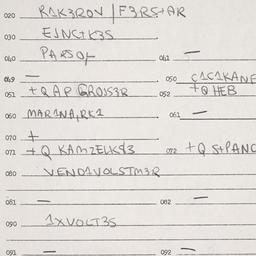 020 R1K3ROV/F3RS+AR
030 EJNC+K3S
040 PARSOF 041 —
049 — 050 C1C1KANE
051 +Q AP GROIS3R 052 +Q HEB
060 MAR1NA,RK1 061 —
070 +
071 +Q KAMZELKS3 072 +Q S+PANC
080 VEND1VOLSTM3R
081 — 082 —
090 1XVOLT3S
091 — 092 —